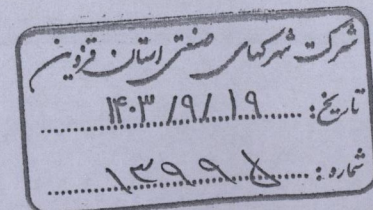 شرکت شهرکهای صنعتی استان قزوین
تاریخ: ۱۴۰۳/۹/۱۹
شماره: